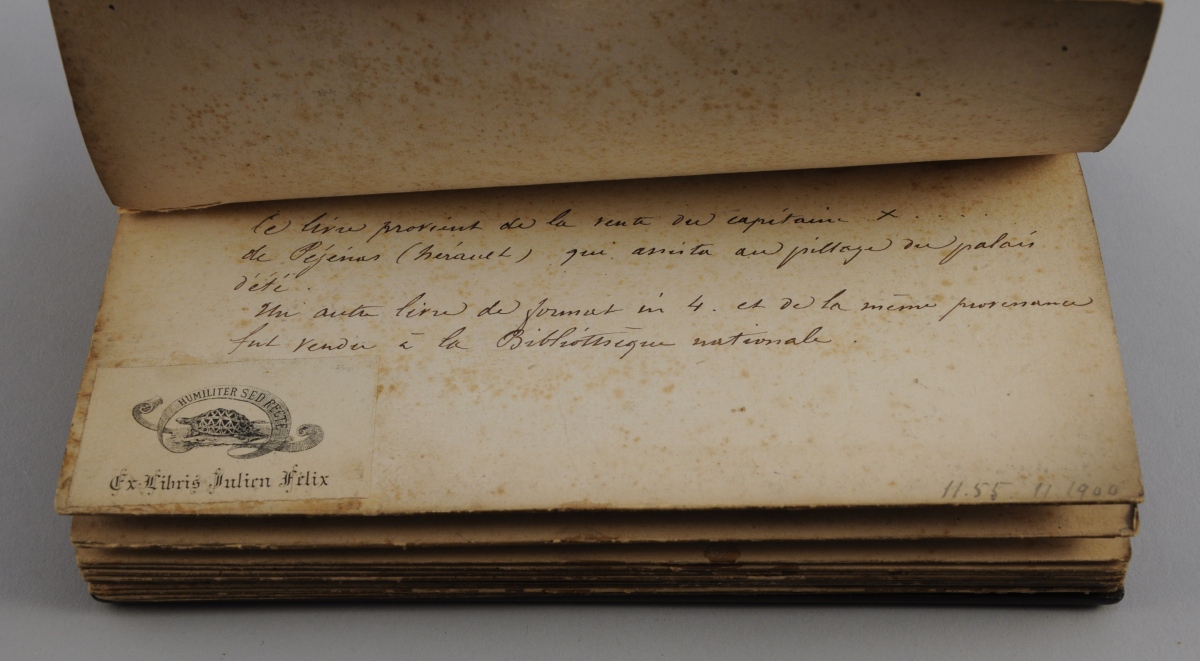 Ce livre provient de la vente du capitaine X . . . . .
de Péjénas (hérault) qui assista au pillage du palais
d'été.
Un autre livre de format in 4. et de la même provenance
fut vendu à la Bibliothèque nationale.
HUMILITER SED RECTE
Ex-Libris Julien Félix
11.55 11 1900